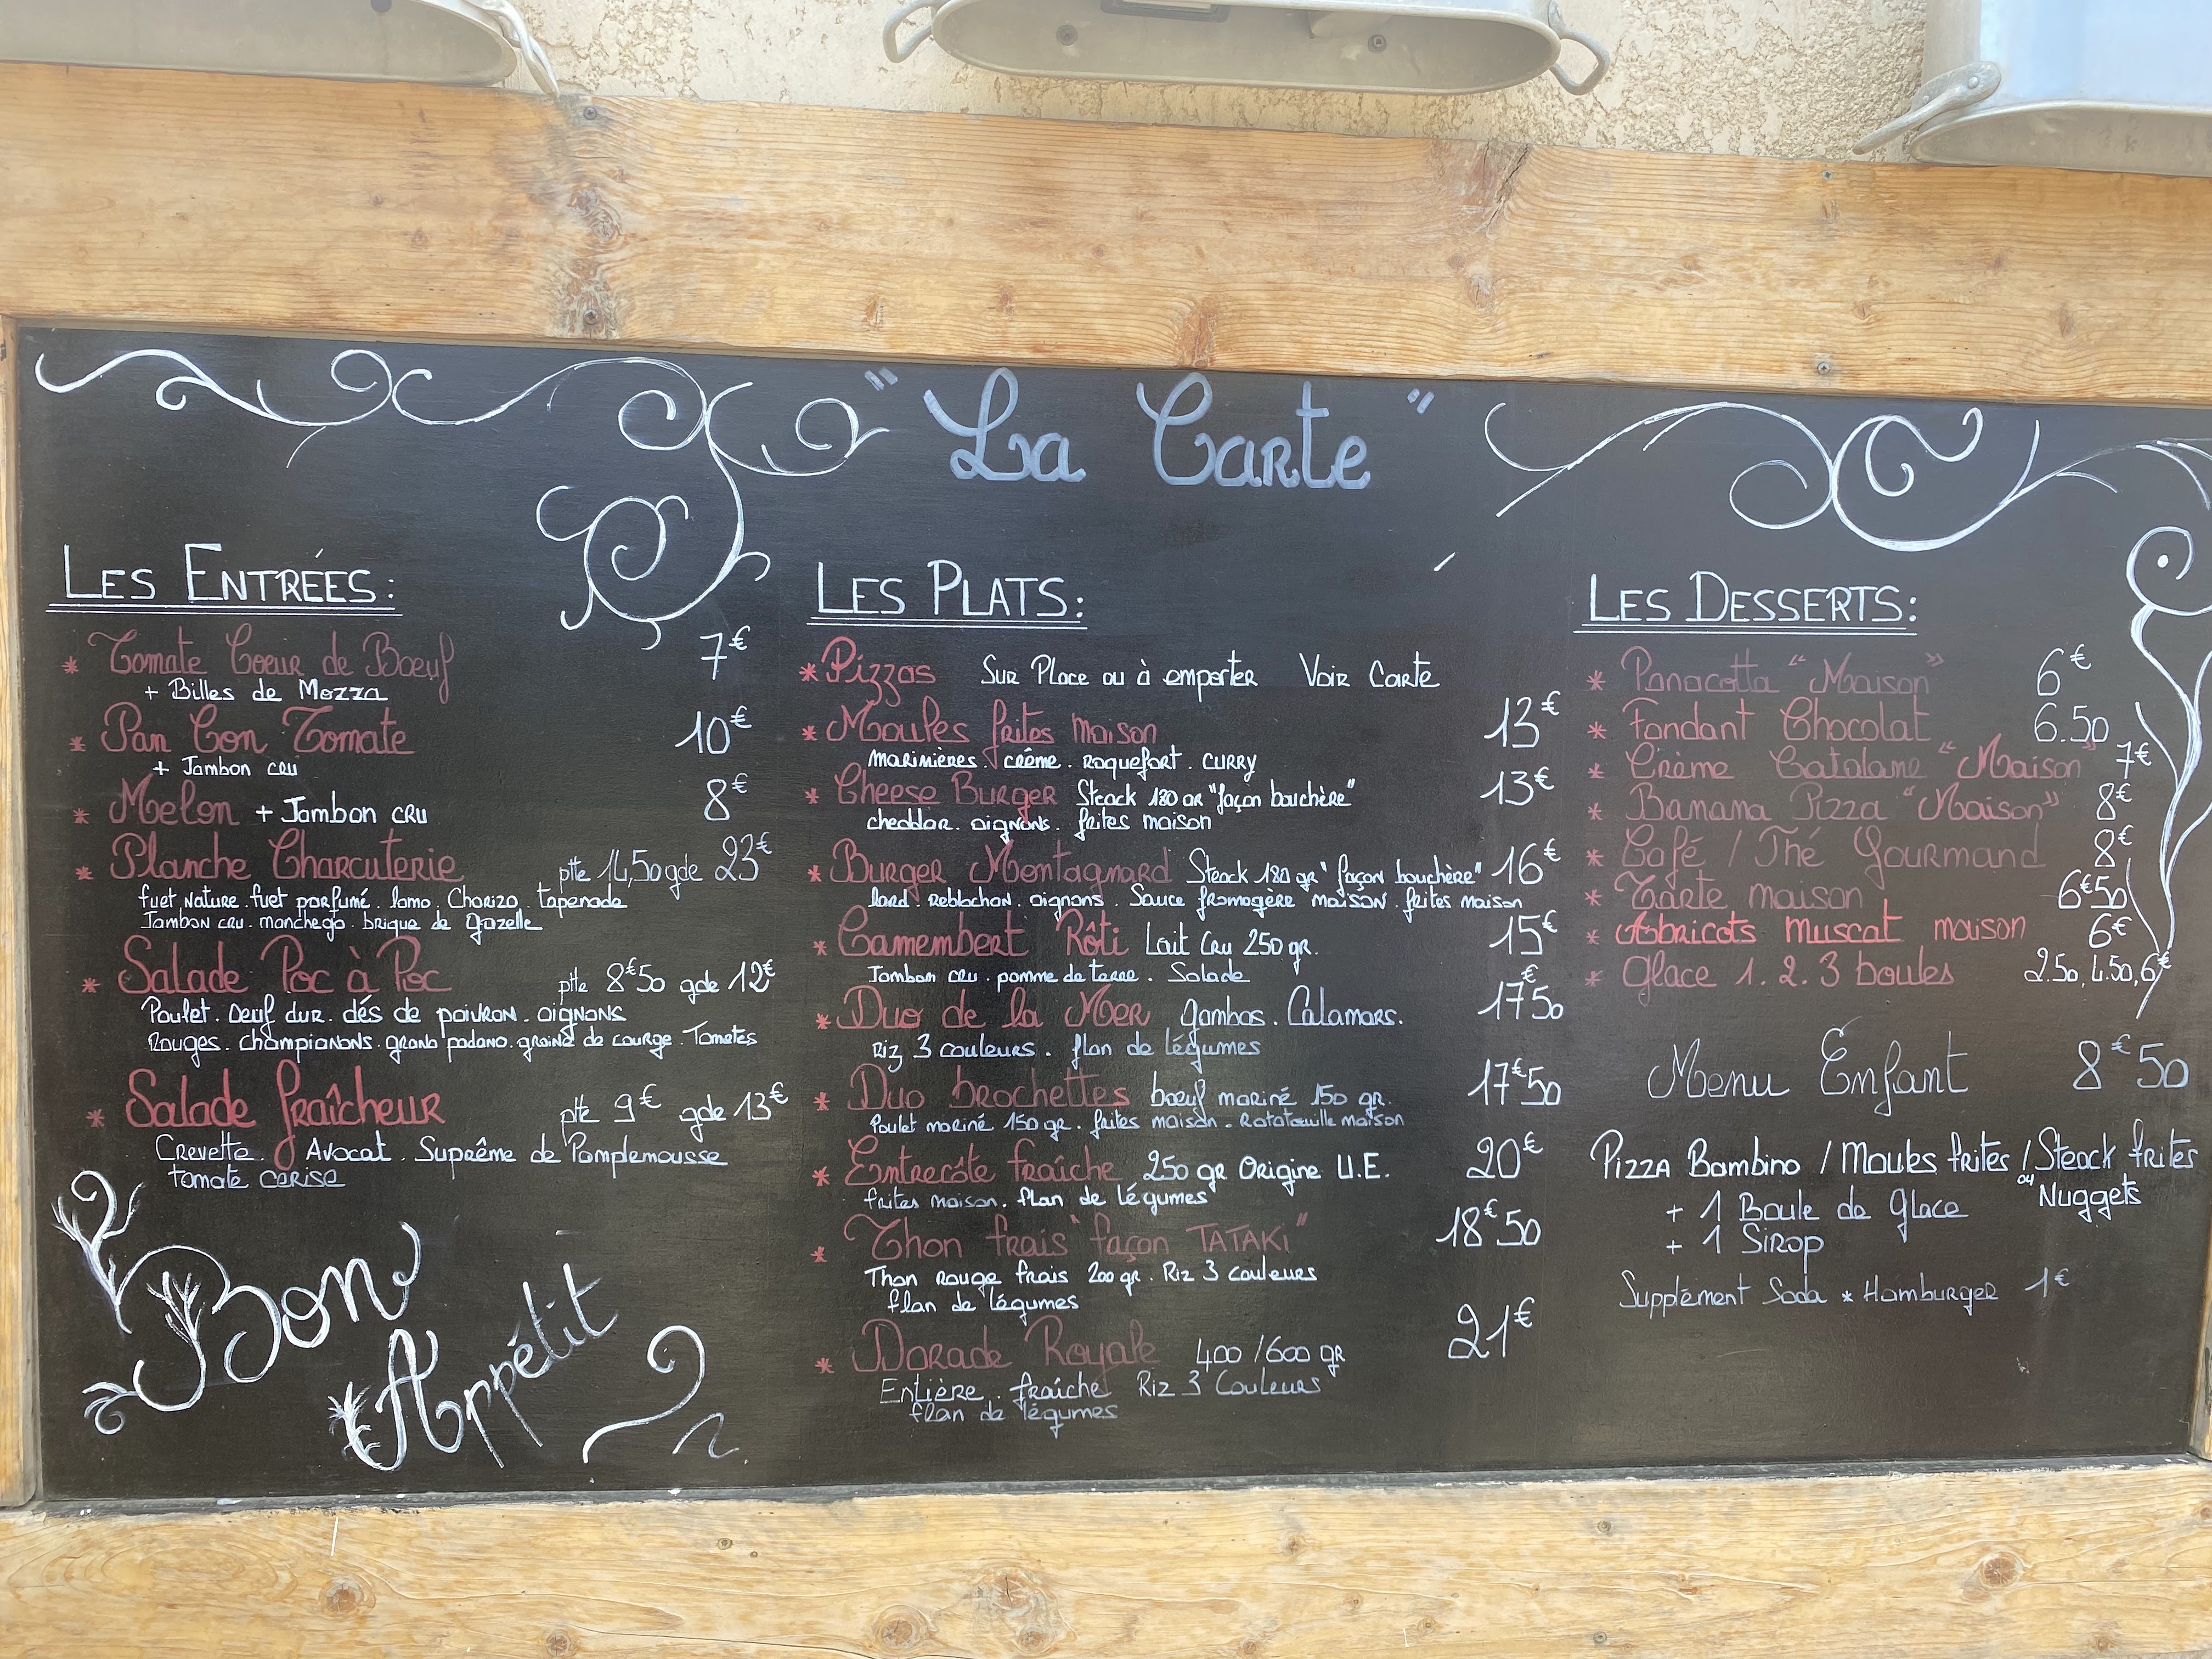 "La Carte"
LES ENTRÉES:
* Tomate Coeur de Boeuf 7€
+ Billes de Mozza
* Pan Con Tomate 10€
+ Jambon cru
* Melon + Jambon cru 8€
* Planche Charcuterie ptte 14,50 gde 23€
fuet Nature. fuet parfumé. lomo. Chorizo. tapenade
Jambon cru. manchego. brique de gazelle
* Salade Poc à Poc ptte 8€50 gde 12€
Poulet. Oeuf dur. dés de poivron. oignons
Rouges. champignons. grana padano. graine de courge. Tomates
* Salade fraîcheur ptte 9€ gde 13€
Crevette. Avocat. Suprême de Pamplemousse
tomate cerise
Bon
Appétit
LES PLATS:
* Pizzas Sur Place ou à emporter Voir Carte
* Moules frites maison 13€
marinières. crème. roquefort. curry
* Cheese Burger Steack 180 gr "façon bouchère" 13€
cheddar. oignons. frites maison
* Burger Montagnard Steack 180 gr "façon bouchère" 16€
lard. Reblochon. oignons. Sauce fromagère maison. frites maison
* Camembert Rôti Lait Cru 250 gr. 15€
Jambon cru. pomme de terre. Salade
* Duo de la Mer Gambas. Calamars. 17€50
Riz 3 couleurs. flan de légumes
* Duo brochettes boeuf mariné 150 gr. 17€50
Poulet mariné 150 gr. frites maison - Ratatouille maison
* Entrecôte fraîche 250 gr Origine U.E. 20€
frites maison. flan de légumes
* Thon frais "façon TATAKI" 18€50
Thon rouge frais 200 gr. Riz 3 couleurs
flan de légumes
* Dorade Royale 400/600 gr 21€
Entière. fraîche Riz 3 Couleurs
flan de légumes
LES DESSERTS:
* Panacotta "Maison" 6€
* Fondant Chocolat 6.50
* Crème Catalane "Maison" 7€
* Banana Pizza "Maison" 8€
* Café / Thé Gourmand 8€
* Tarte maison 6€50
* Abricots muscat maison 6€
* Glace 1. 2. 3 boules 2.50, 4.50, 6€
Menu Enfant 8€50
Pizza Bambino / Moules frites / Steack frites
ou Nuggets
+ 1 Boule de Glace
+ 1 Sirop
Supplément Soda * Hamburger 1€